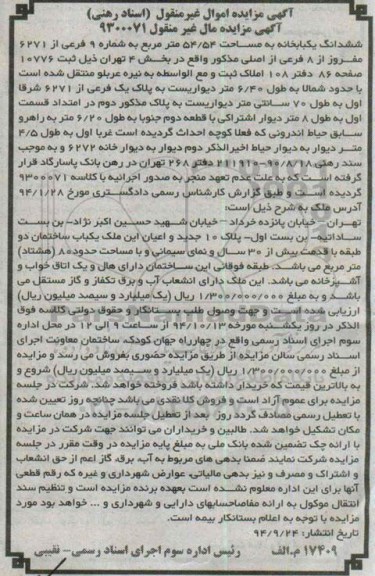 آگهی مزایده اموال غیرمنقول (اسناد رهنی)
آگهی مزایده مال غیر منقول ۹۳۰۰۰۷۱
ششدانگ یکبابخانه به مساحت ۵۴/۵۴ متر مربع به شماره ۹ فرعی از ۶۲۷۱
مفروز از ۸ فرعی از اصلی مذکور واقع در بخش ۴ تهران ذیل ثبت ۱۰۷۷۶
صفحه ۸۶ دفتر ۱۰۸ املاک ثبت و مع الواسطه به نیره عربلو منتقل شده است
با حدود شمالا به طول ۶/۴۰ متر دیواریست به پلاک یک فرعی از ۶۲۷۱ شرقا
اول به طول ۷۰ سانتی متر دیواریست به پلاک مذکور دوم در امتداد قسمت
اول به طول ۸ متر دیوار اشتراکی با قطعه دوم جنوبا به طول ۶/۲۰ متر به راهرو
سابق حیاط اندرونی که فعلا کوچه احداث گردیده است غربا اول به طول ۴/۵
متر دیوار به دیوار حیاط اخیرالذکر دوم دیوار به دیوار خانه ۶۲۷۲ و به موجب
سند رهنی ۹۰/۸/۱۸-۲۱۱۹۱۰ دفتر ۲۶۸ تهران در رهن بانک پاسارگاد قرار
گرفته است که به علت عدم تعهد منجر به صدور اجرائیه با کلاسه ۹۳۰۰۰۷۱
گردیده است و طبق گزارش کارشناس رسمی دادگستری مورخ ۹۴/۱/۲۸
آدرس ملک به شرح ذیل است:
تهران- خیابان پانزده خرداد- خیابان شهید حسین اکبر نژاد- بن بست
ساداتیه- بن بست اول- پلاک ۱۰ جدید و اعیان این ملک یکباب ساختمان دو
طبقه با قدمت بیش از ۳۰ سال و نمای سیمانی و با مساحت حدود ۸۰ (هشتاد)
متر مربع می باشد. طبقه فوقانی این ساختمان دارای هال و یک اتاق خواب و
آشپزخانه می باشد. این ملک دارای انشعاب آب و برق تکفاز و گاز مستقل می
باشد و به مبلغ ۱/۳۰۰/۰۰۰/۰۰۰ ریال (یک میلیارد و سیصد میلیون ریال)
ارزیابی شده است و جهت وصول طلب بستانکار و حقوق دولتی کلاسه فوق
الذکر در روز یکشنبه مورخه ۹۴/۱۰/۱۳ از ساعت ۹ الی ۱۲ در محل اداره
سوم اجرای اسناد رسمی واقع در چهارراه جهان کودک، ساختمان معاونت اجرای
اسناد رسمی سالن مزایده از طریق مزایده حضوری بفروش می رسد و مزایده
از مبلغ ۱/۳۰۰/۰۰۰/۰۰۰ ریال (یک میلیارد و سیصد میلیون ریال) شروع و
به بالاترین قیمت که خریدار داشته باشد فروخته خواهد شد. شرکت در جلسه
مزایده برای عموم آزاد است و فروش کلا نقدی می باشد چنانچه روز تعیین شده
با تعطیل رسمی مصادف گردد روز بعد از تعطیل جلسه مزایده در همان ساعت و
مکان تشکیل خواهد شد. طالبین و خریداران می توانند جهت شرکت در مزایده
با ارائه چک تضمین شده بانک ملی به مبلغ پایه مزایده در وقت مقرر در جلسه
مزایده شرکت نمایند ضمنا بدهی های مربوط به آب، برق، گاز اعم از حق انشعاب
و اشتراک و مصرف و نیز بدهی مالیاتی، عوارض شهرداری و غیره که رقم قطعی
آنها برای این اداره معلوم نشده است بعهده برنده مزایده است و تنظیم سند
انتقال موکول به ارائه مفاصاحسابهای دارایی و شهرداری و ... خواهد بود مورد
مزایده با توجه به اعلام بستانکار بیمه است.
تاریخ انتشار: ۹۴/۹/۲۴
۱۷۴۰۹ م.الف رئیس اداره سوم اجرای اسناد رسمی- نقیبی